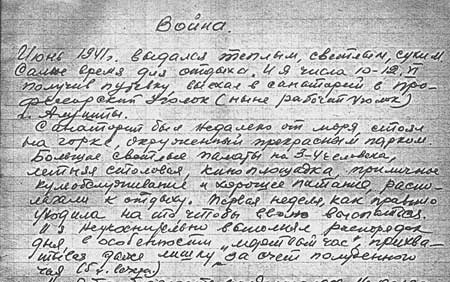 Война.
Июнь 1941г. выдался теплым, светлым, сухим.
Самое время для отдыха. И я числа 10-12.VI
получив путевку, выехал в санаторий в Про-
фессорский Уголок (ныне рабочий уголок)
г. Алушты.
Санаторий был недалеко от моря, стоял
на горке, окруженный прекрасным парком.
Большие светлые палаты на 3-4 человека,
летняя столовая, киноплощадка, приличное
культобслуживание и хорошее питание, распо-
лагали к отдыху. Первая неделя, как правило
уходила на то чтобы вволю выспаться.
И я неукоснительно выполнял распорядок
дня, в особенности "мертвый час", прихва-
тывая даже лишку за счет полуденного
чая (5 г. вечера)